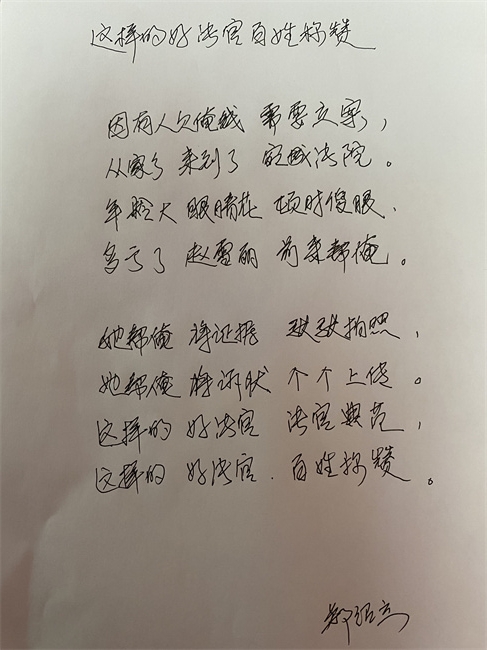 这样的好法官百姓称赞
因有人欠俺钱 需要立案,
从家乡 来到了 宛城法院。
年龄大 眼睛花 顿时傻眼.
多亏了 赵雪丽 前来帮俺。
她帮俺 将证据 张张拍照,
她帮俺 将诉状 个个上传。
这样的 好法官 法官典范,
这样的 好法官. 百姓称赞。